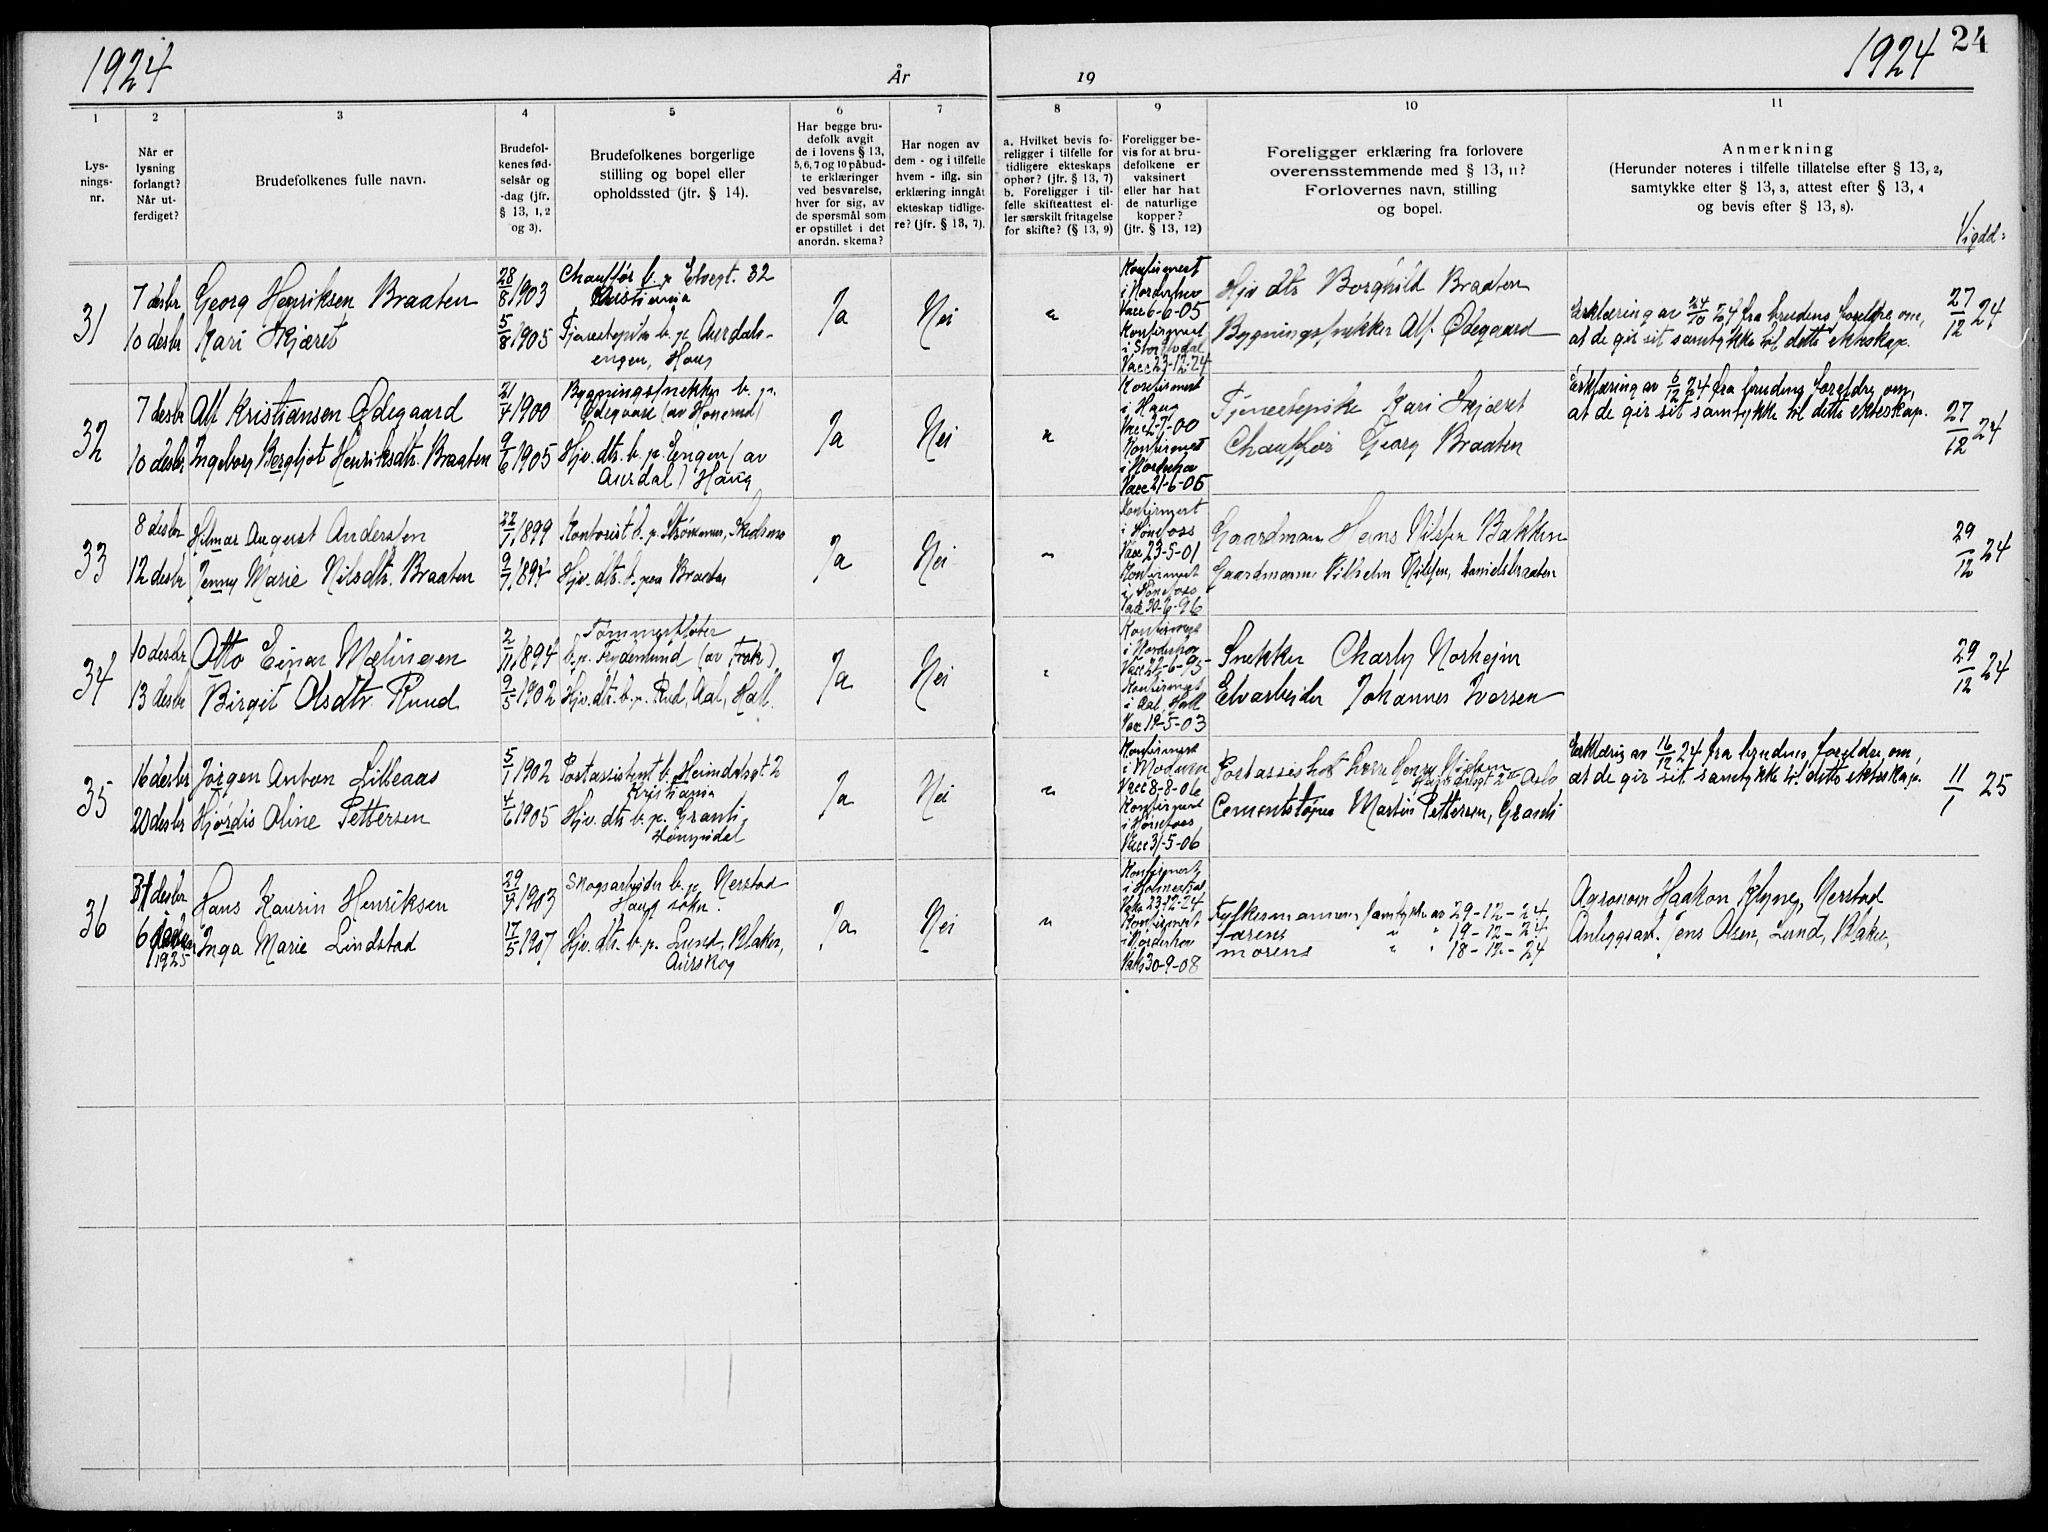 1924
År
19
1924
24
1
2
3
4
5
6
7
8
9
10
11
Lys-
nings-
nr.
Når er
lysning
forlangt?
Når ut-
ferdiget?
Brudefolkenes fulle navn.
Brudefol-
kenes fød-
selsår og
-dag (jfr.
§ 13, 1, 2
og 3).
Brudefolkenes borgerlige
stilling og bopel eller
opholdssted (jfr. § 14).
Har begge bru-
defolk avgit
de i lovens § 13,
5, 6, 7 og 10 påbud-
te erklæringer
ved besvarelse,
hver for sig, av
de spørsmål som
er opstillet i det
anordn. skema?
Har nogen av
dem - og i tilfelle
hvem - iflg. sin
erklæring inngåt
ekteskap tidlige-
re? (jfr. § 13, 7).
a. Hvilket bevis fo-
religger i tilfelle for
tidligere ekteskaps
ophør? (jfr. § 13, 7)
b. Foreligger i til-
felle skifteattest el-
ler særskilt fritagelse
for skifte? (§ 13, 9)
Foreligger be-
vis for at bru-
defolkene er
vaksinert
eller har hat
de naturlige
kopper?
(jfr. § 13, 12)
Foreligger erklæring fra forlovere
overensstemmende med § 13, 11?
Forlovernes navn, stilling
og bopel.
Anmerkning
(Herunder noteres i tilfelle tillatelse efter § 13, 2,
samtykke efter § 13, 3, attest efter § 13, 4
og bevis efter § 13, 8).
Vigdd:
31
7 desbr
10 desbr
Georg Henriksen Braaten
Kari Skjæret
28/8 1903
5/8 1905
Chauffør b. p. Elvegt. 32
Kristiania
Tjenestepike b. p. Aurdals-
engen, Haug
Ja
Nei
"
Konfirmert
i Norderhov
Vacc 6-6-05
Konfirmert
i
Vacc 23-12-24
Hjv dtr Borghild Braaten
Bygningssnekker Alf Ødegaard
Erklæring av 24/10 24 fra brudens foreldre om,
at de gir sit samtykke til dette ekteskap.
27/12 24
32
7 desbr
10 desbr
Alf Kristiansen Ødegaard
Ingeborg Bergljot Henriksdtr. Braaten
21/4 1900
9/6 1905
Bygningssnekker b. p.
Ødegaard (av Hønerud)
Hjv. dtr. b. p. Engen (av
Aurdal) Haug
Ja
Nei
"
Konfirmert
i Haug
Vacc 2-7-00
Konfirmert
i Norderhov
Vacc 21-6-05
Tjenestepike Kari Skjæret
Chauffør Georg Braaten
Erklæring av 6/12 24 fra brudens foreldre om,
at de gir sit samtykke til dette ekteskap.
27/12 24
33
8 desbr
12 desbr
Hilmar August Andersen
Jenny Marie Nilsdtr. Braaten
22/7 1899
9/7 1894
Kontorist b. p. Strømmen, Skedsmo
Hjv. dtr. b. paa Braaten
Ja
Nei
"
Konfirmert
i Hønefoss
Vacc 23-5-01
Konfirmert
i Hønefoss
Vacc 30-6-96
Gaardmann Hans Nilsen Bakken
Gaardmann Vilhelm Nilsen, Danielsbraaten
29/12 24
34
10 desbr
13 desbr
Otto Einar Mælingen
Birgit Olsdtr Ruud
2/11 1894
9/5 1902
Tømmerfløter
b. p. Frydenlund (av Frok)
Hjv. dtr. b. p. Rud, Aal, Hall.
Ja
Nei
"
Konfirmert
i Norderhov
Vacc 22-6-95
Konfirmert
i Aal, Hall
Vacc 19-5-03
Snekker Charly Norheim
Elvarbeider Johannes Iversen
29/12 24
35
16 desbr
20 desbr
Jørgen Anton Lilleaas
Hjørdis Oline Pettersen
5/1 1902
4/6 1905
Postassistent b. Heimdalsgt 2
Kristiania
Hjv. dtr b. p. Granli,
Ja
Nei
"
Konfirmert
i Modum
Vacc 8-8-06
Konfirmert
i Hønefoss
Vacc 31-5-06
Postassistent herr Henry
Heimdalsgt 2 Oslo
Cementstøper Martin Pettersen, Granli
Erklæring av 16/12 24 fra brudens foreldre om,
at de gir sit samtykke til dette ekteskap.
11/1 25
36
31 desbr
6 jan
1925
Hans Kaurin Henriksen
Inga Marie Lindstad
29/9 1903
17/5 1907
Skogsarbeider b. p. Nerstad
Haug sokn.
Hjv. dtr. b. p. Lund, Blaker,
Aurskog
Ja
Nei
"
Konfirmert
i Holmestad
Vaks 23-12-24
Konfirmert
i Norderhov
Vaks 30-9-08
Fylkesmannens samtykke av 29-12-24,
farens " " 19-12-24
morens " " 18-12-24
Agronom Haakon Klyng, Nerstad
Anleggsarb. Jens Olsen, Lund, Blaker,